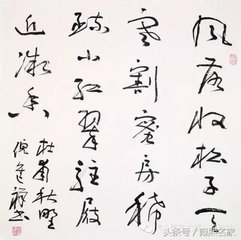 风落收松子天
寒割蜜房稀
疏小红翠驻屐
近微香
杜甫秋野
头条号